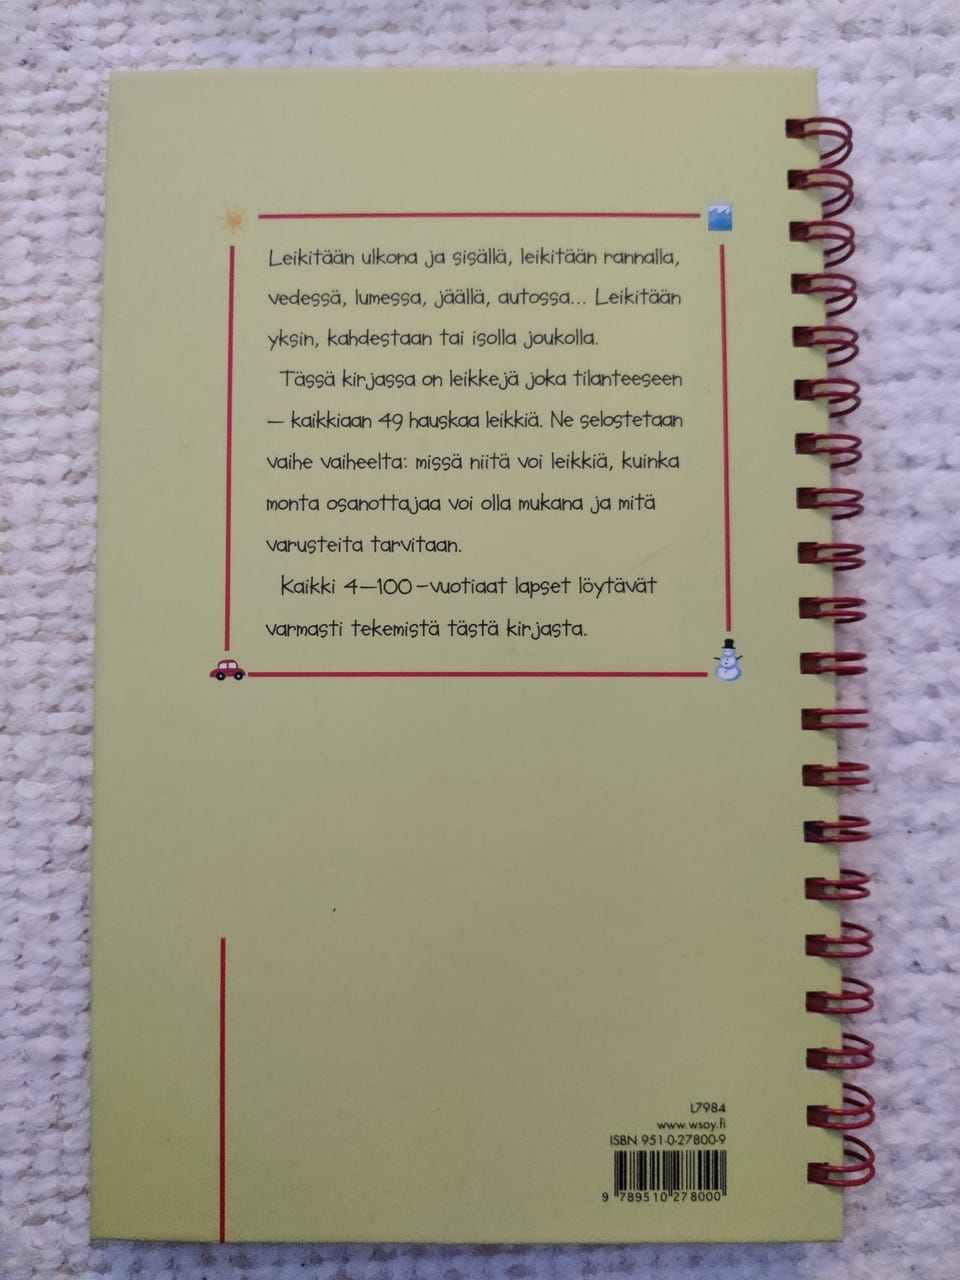 Leikitään ulkona ja sisällä, leikitään rannalla,
vedessä, lumessa, jäällä, autossa... Leikitään
yksin, kahdestaan tai isolla joukolla.
Tässä kirjassa on leikkejä joka tilanteeseen
– kaikkiaan 49 hauskaa leikkiä. Ne selostetaan
vaihe vaiheelta: missä niitä voi leikkiä, kuinka
monta osanottajaa voi olla mukana ja mitä
varusteita tarvitaan.
Kaikki 4–100-vuotiaat lapset löytävät
varmasti tekemistä tästä kirjasta.
L7984
www.wsoy.fi
ISBN 951-0-27800-9
9 789510 278000